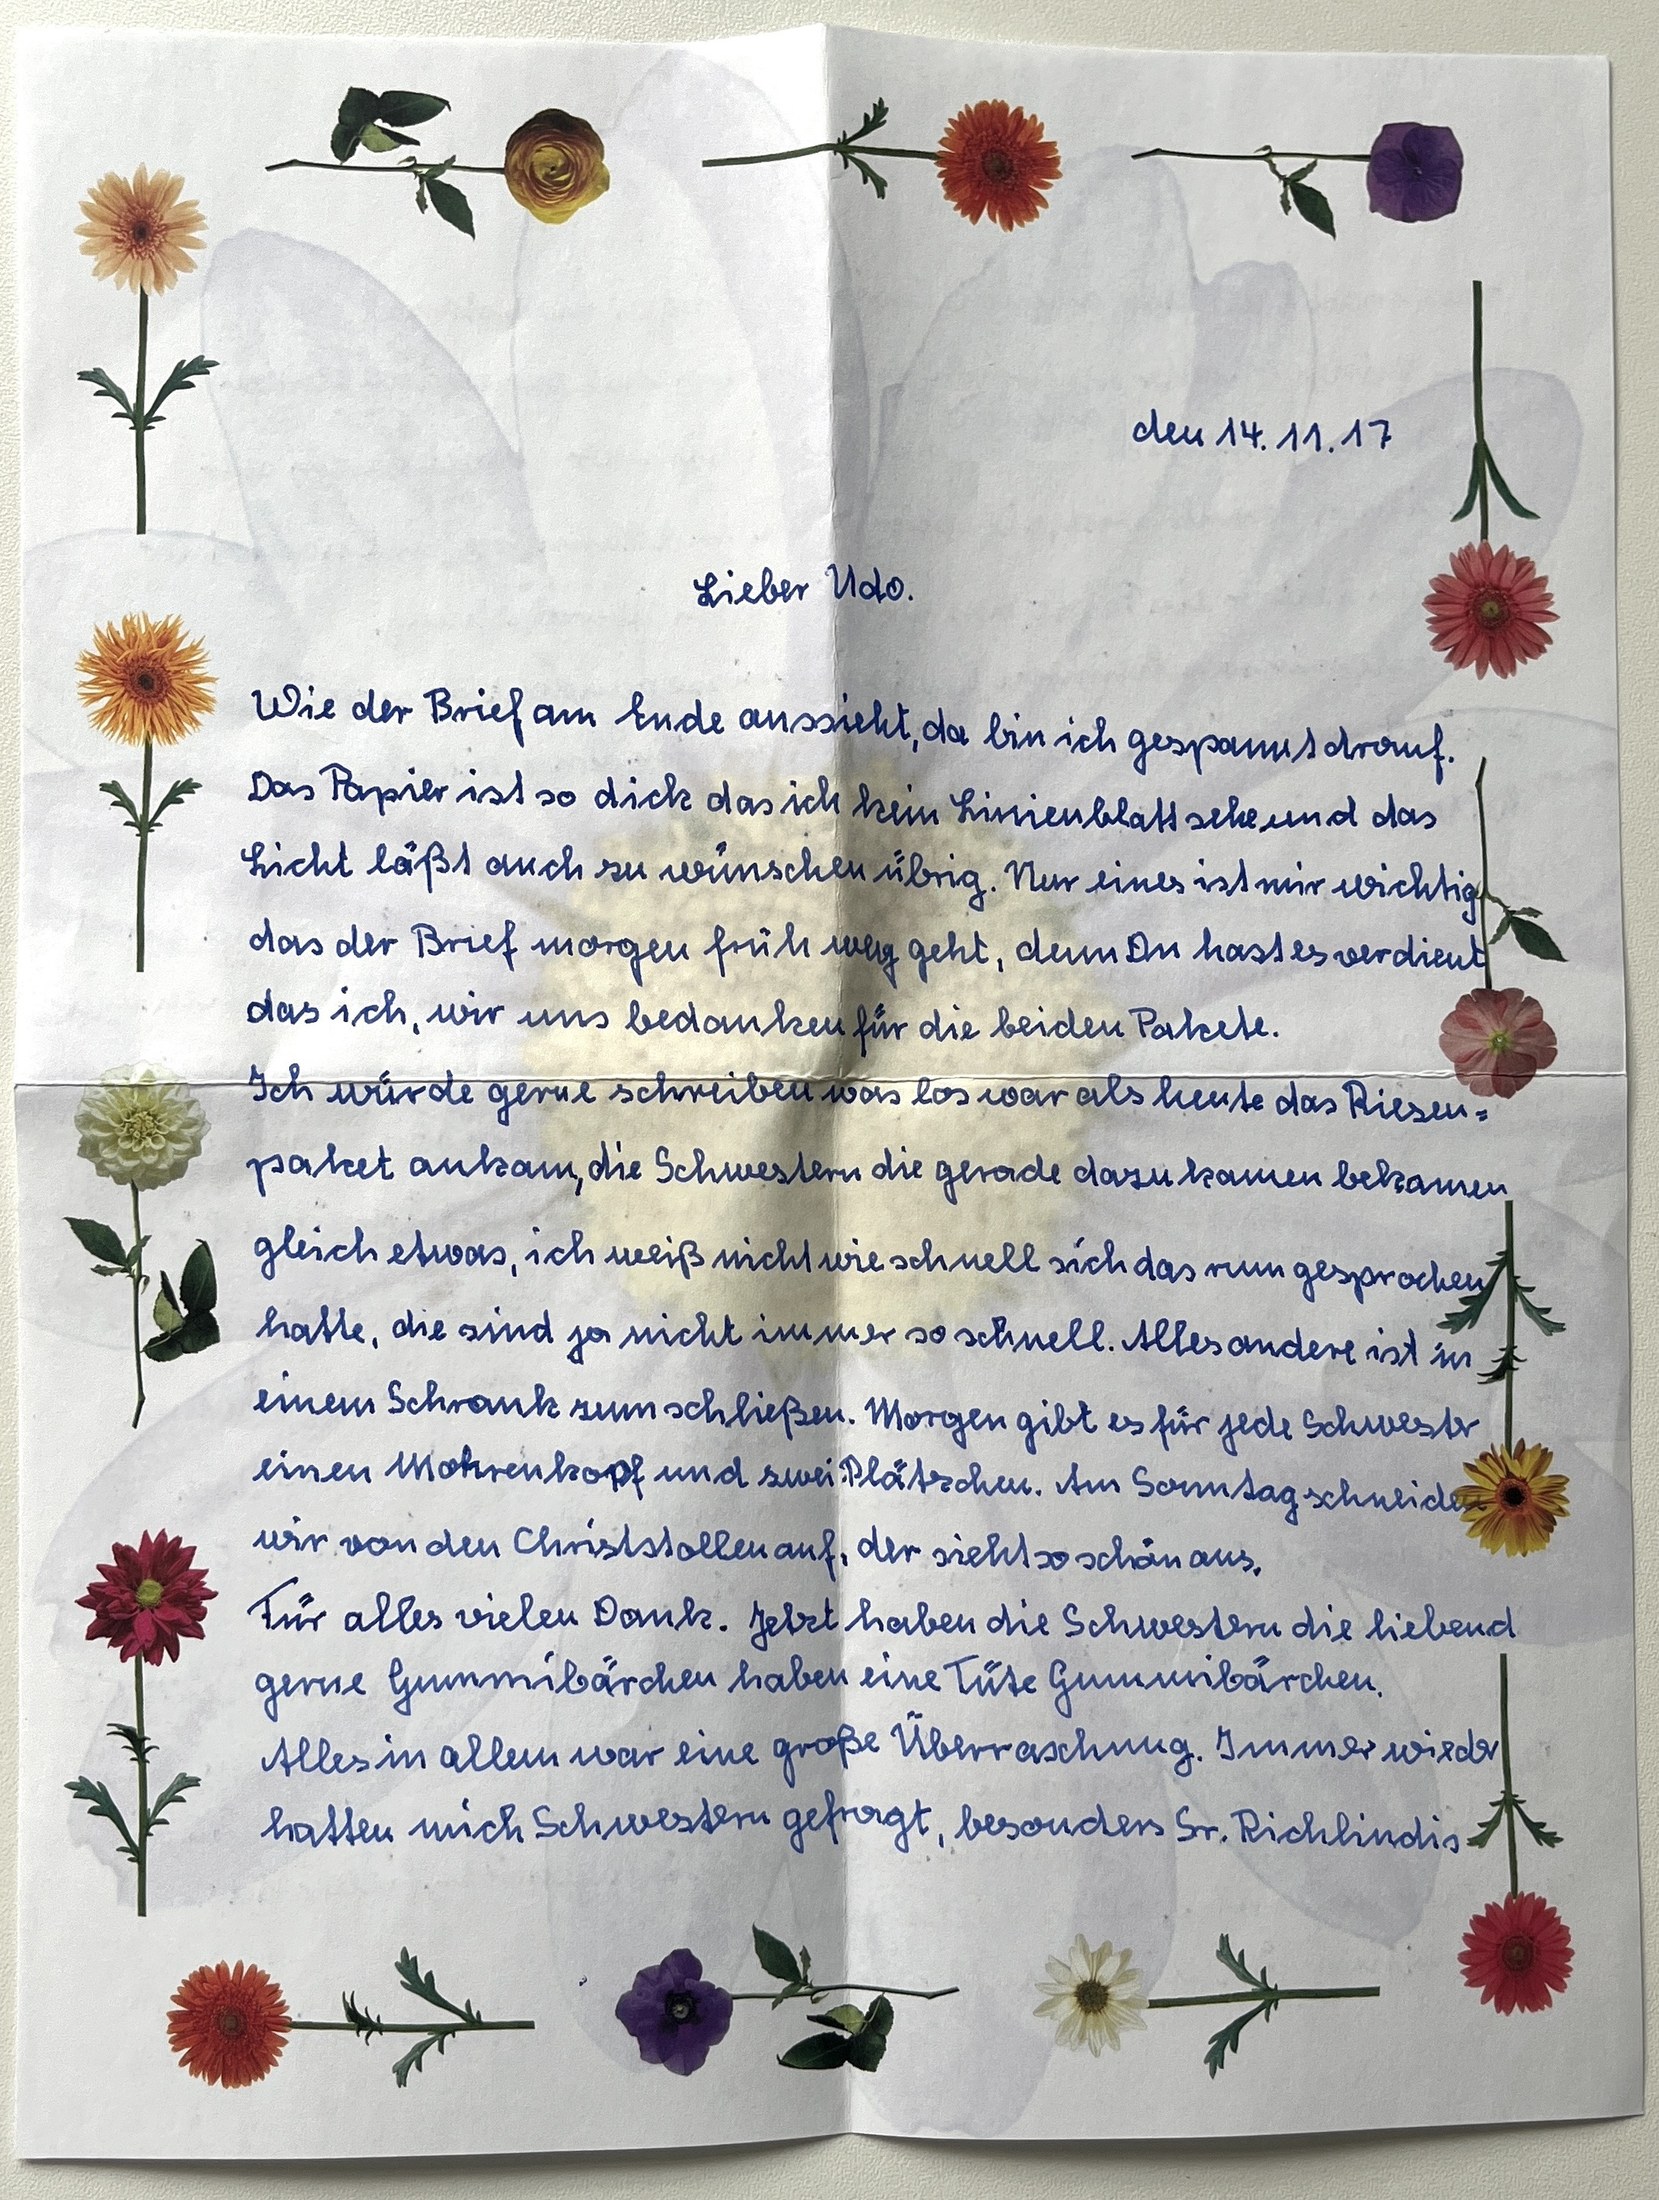 den 14.11.17
Lieber Udo.
Wie der Brief am Ende aussieht, da bin ich gespannt drauf.
Das Papier ist so dick das ich kein Linienblatt sehe und das
Licht läßt auch zu wünschen übrig. Nur eines ist mir wichtig
das der Brief morgen früh weg geht, denn Du hast es verdient
das ich, wir uns bedanken für die beiden Pakete.
Ich würde gerne schreiben was los war als heute das Riesen=
paket ankam, die Schwestern die gerade dazu kamen bekamen
gleich etwas, ich weiß nicht wie schnell sich das rum gesprochen
hatte, die sind ja nicht immer so schnell. Alles andere ist in
einem Schrank zum schließen. Morgen gibt es für jede Schwester
einen Mohrenkopf und zwei Plätzchen. Am Sonntag schneiden
wir von den Christstollen auf, der sieht so schön aus.
Für alles vielen Dank. Jetzt haben die Schwestern die liebend
gerne Gummibärchen haben eine Tüte Gummibärchen.
Alles in allem war eine große Überraschung. Immer wieder
hatten mich Schwestern gefragt, besonders Sr. Richlindis